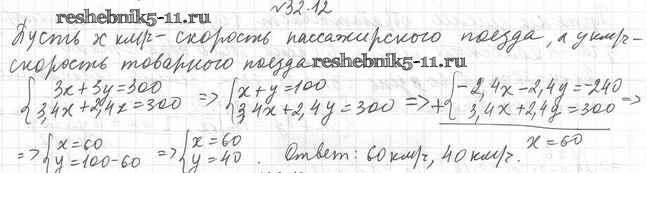 №32.12
reshebnik5-11.ru
Пусть x км/ч - скорость пассажирского поезда, а y км/ч -
скорость товарного поезда reshebnik5-11.ru
{3x+3y=300 => {x+y=100 => +{-2,4x-2,4y=-240 =>
{3,4x+2,4x=300 {3,4x+2,4y=300 {3,4x+2,4y=300
x=60
=> {x=60 => {x=60
{y=100-60 {y=40. Ответ: 60 км/ч, 40 км/ч.